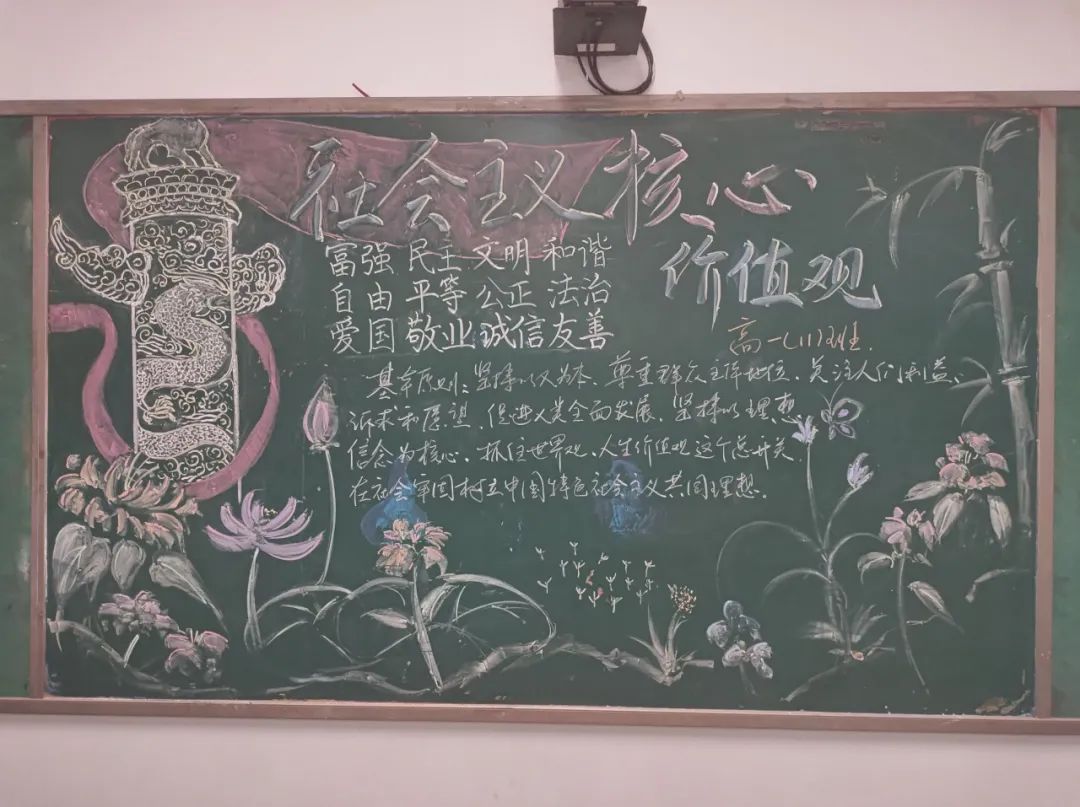 社会主义核心
价值观
富强 民主 文明 和谐
自由 平等 公正 法治
爱国 敬业 诚信 友善
高一(11)班.
基本原则:坚持以人为本、尊重群众主体地位、关注人们利益、
诉求和愿望、促进人类全面发展、坚持以理想
信念为核心、抓住世界观、人生价值观这个总开关.
在社会牢固树立中国特色社会主义共同理想.